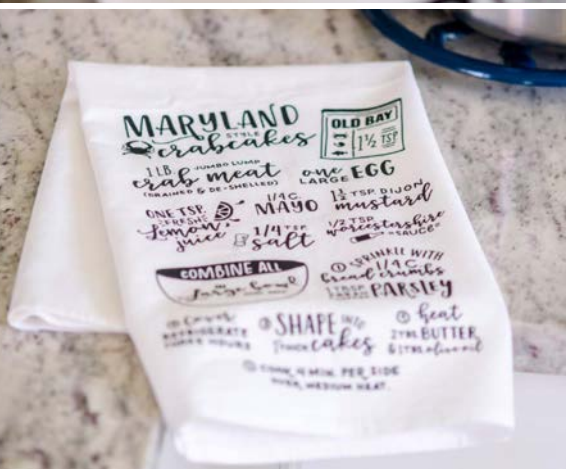 MARYLAND
STYLE
crabcakes
OLD BAY
1½ TSP
1 LB. JUMBO LUMP
crab meat
(DRAINED & DE-SHELLED)
one EGG
LARGE
ONE TSP.
FRESH
Lemon
juice
1/4 C.
MAYO
1/4 TSP.
salt
1½ TSP. DIJON
mustard
1/2 TSP.
worcestershire
"SAUCE"
COMBINE ALL
IN
large bowl
① SPRINKLE WITH
1/4 C.
bread crumbs
1 TBSP.
PARSLEY
② cover
REFRIGERATE
HOURS
③ SHAPE INTO
cakes
④ heat
2 TBS. BUTTER
olive oil
COOK 4 MIN. PER SIDE
OVER MEDIUM HEAT.